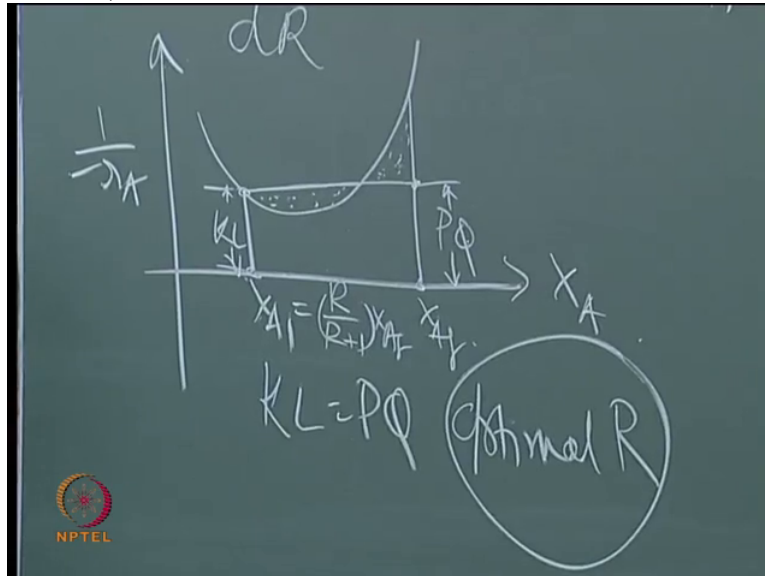 dR
1
-rA
KL
PQ
XA1 = (R/R+1) XAf
XAf
XA
KL = PQ
Optimal R
NPTEL